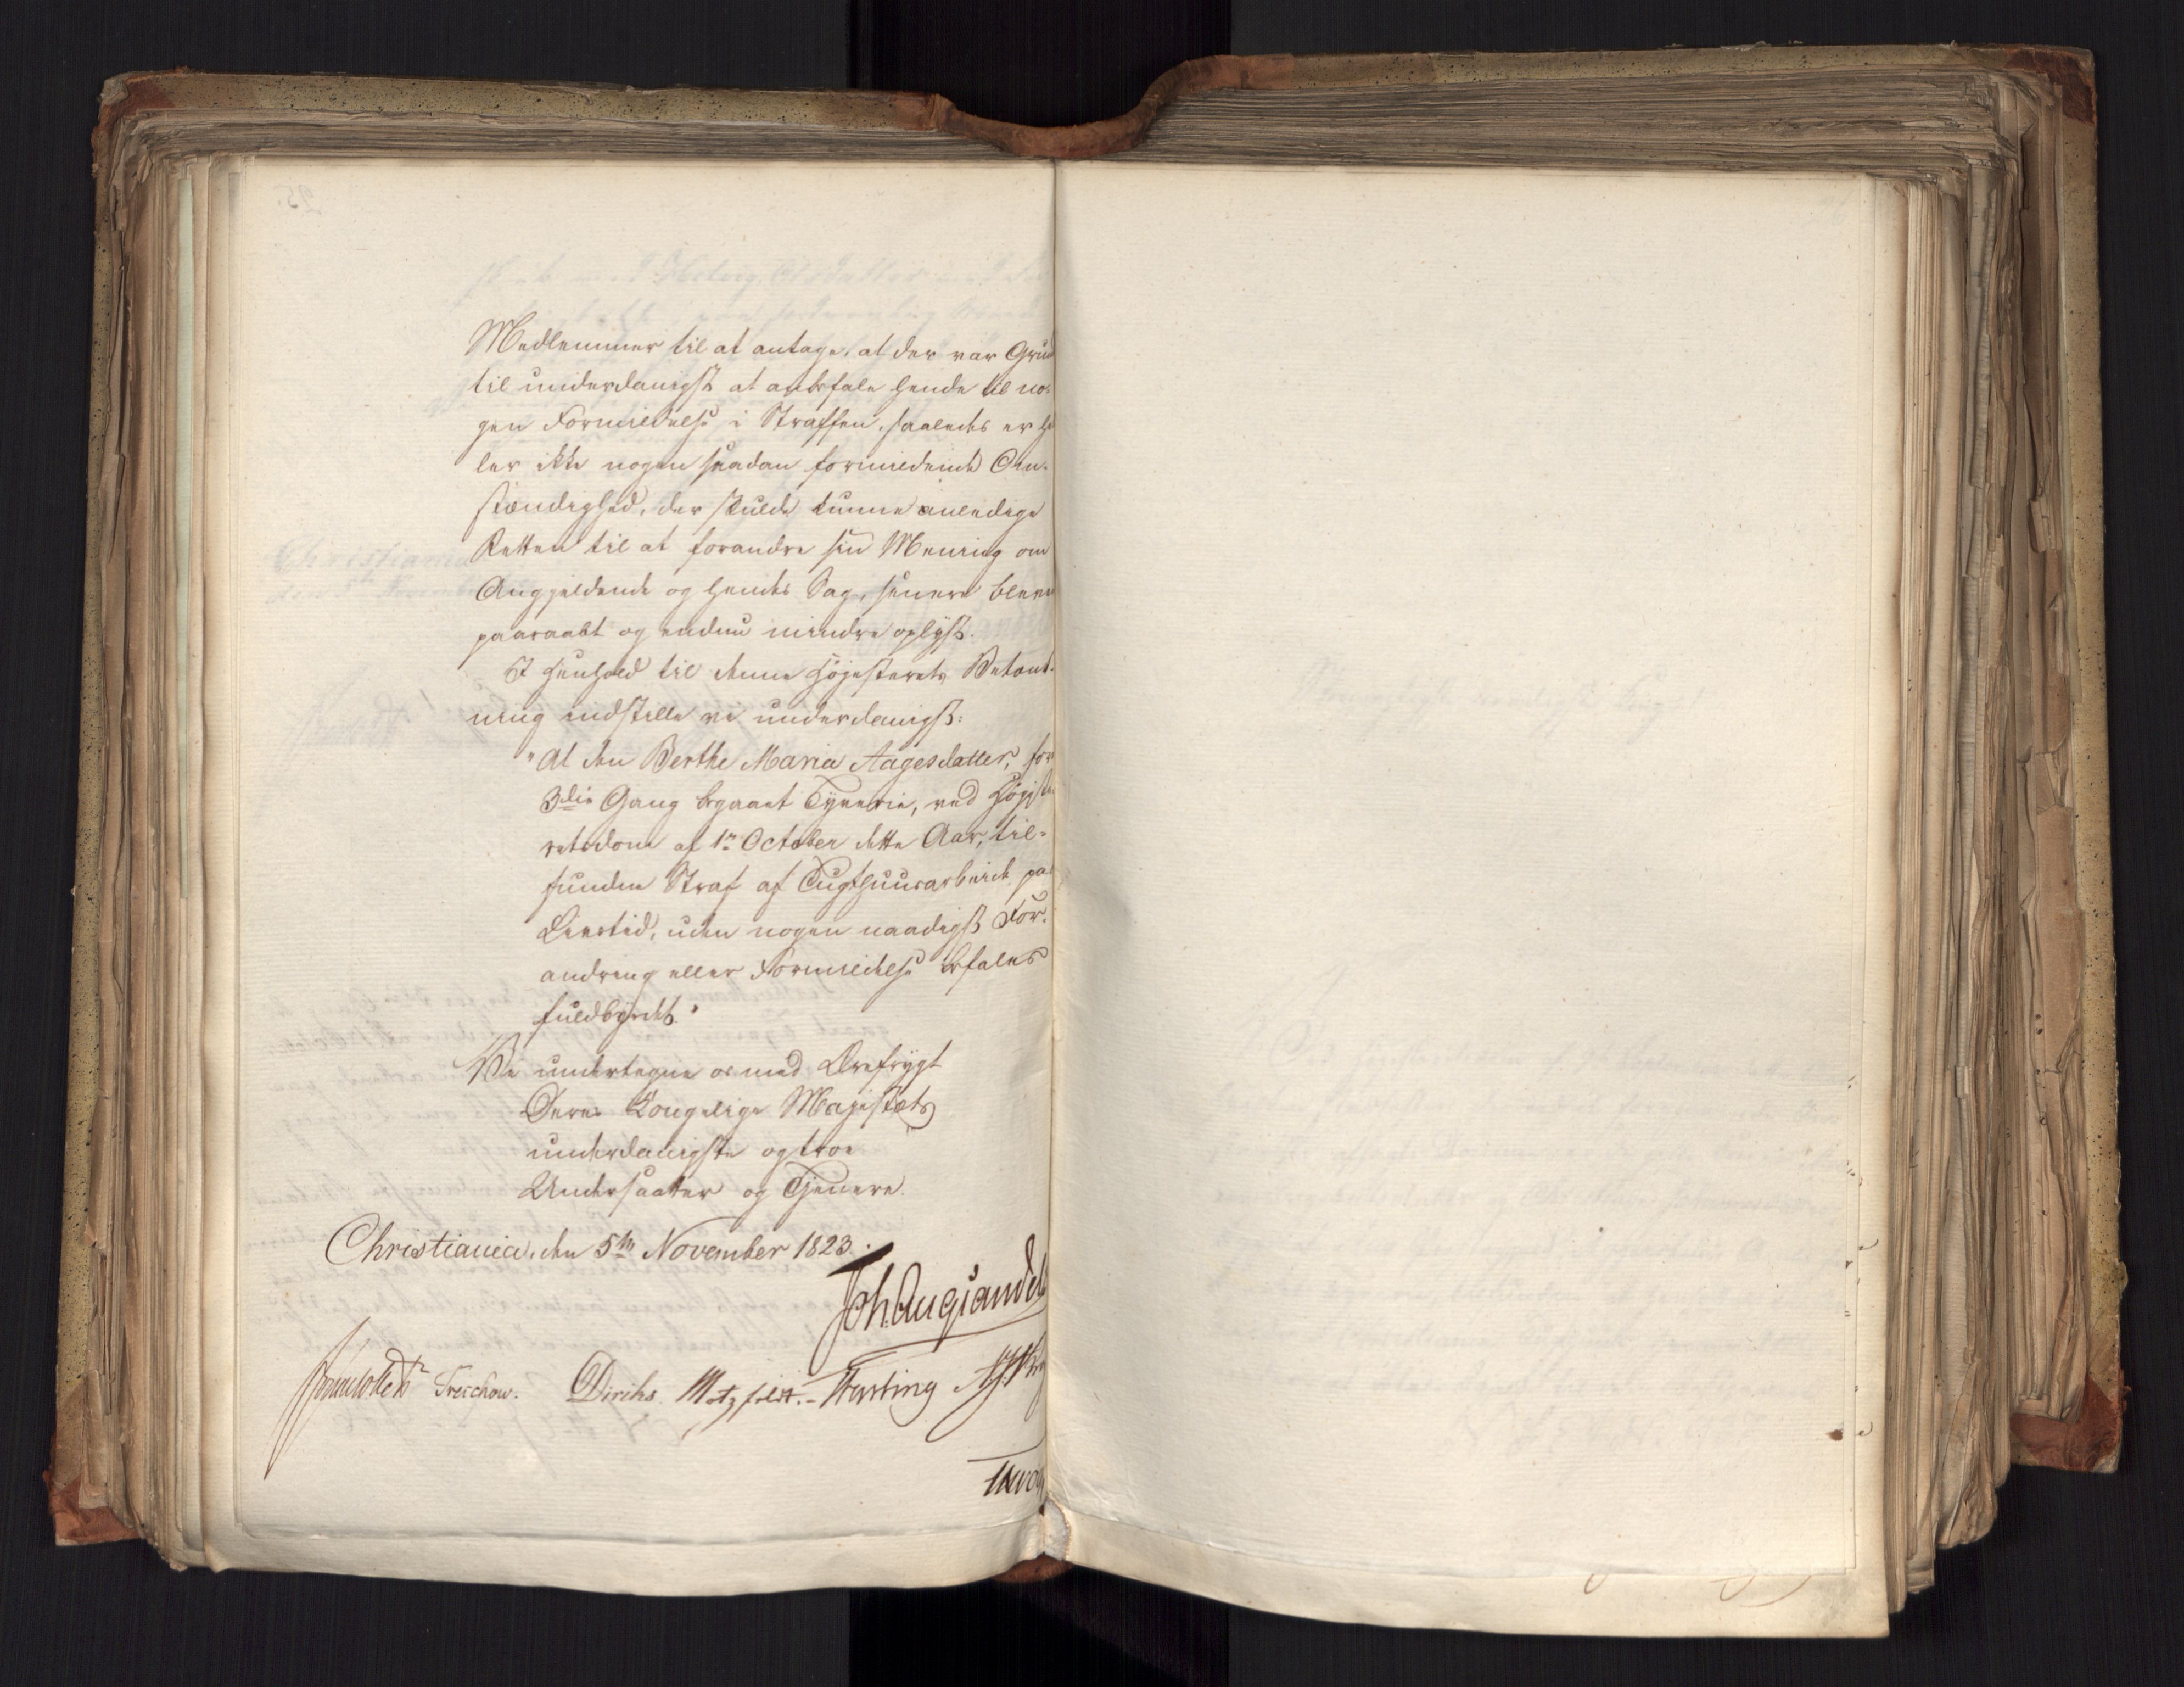 Medlemmer til at antage, at der var Grund
til underdanigst at anbefale hende til no-
gen Formildelse i Straffen, saaledes er hel
ler ikke nogen saadan formildende Om-
stændighed, der skulde kunne anledige
Retten til at forandre sin Mening om
Angjeldende og hendes Sag, senere bleven
paaraabt og endnu mindre oplyst.
I Henhold til denne Højesterets Betænk-
ning indstille vi underdanigst:
"At den Berthe Maria Aagesdatter, for
3die Gang begaaet Tyverie, ved Højeste-
retsdom af 1n October dette Aar, til-
funden Straf af Tugthuusarbeide paa
Livstid, uden nogen naadigst For-
andring eller Formildelse befales
fuldbyrdet."
Vi undertegne os med Ærefrygt
Deres Kongelige Majestæts
underdanigste og troe
Undersaatter og Tjenere.
Christiania, den 5te November 1823.
Joh. Aug: Sandels
Sommerhielm Treschow. Diriks. Motzfeldt. Fasting